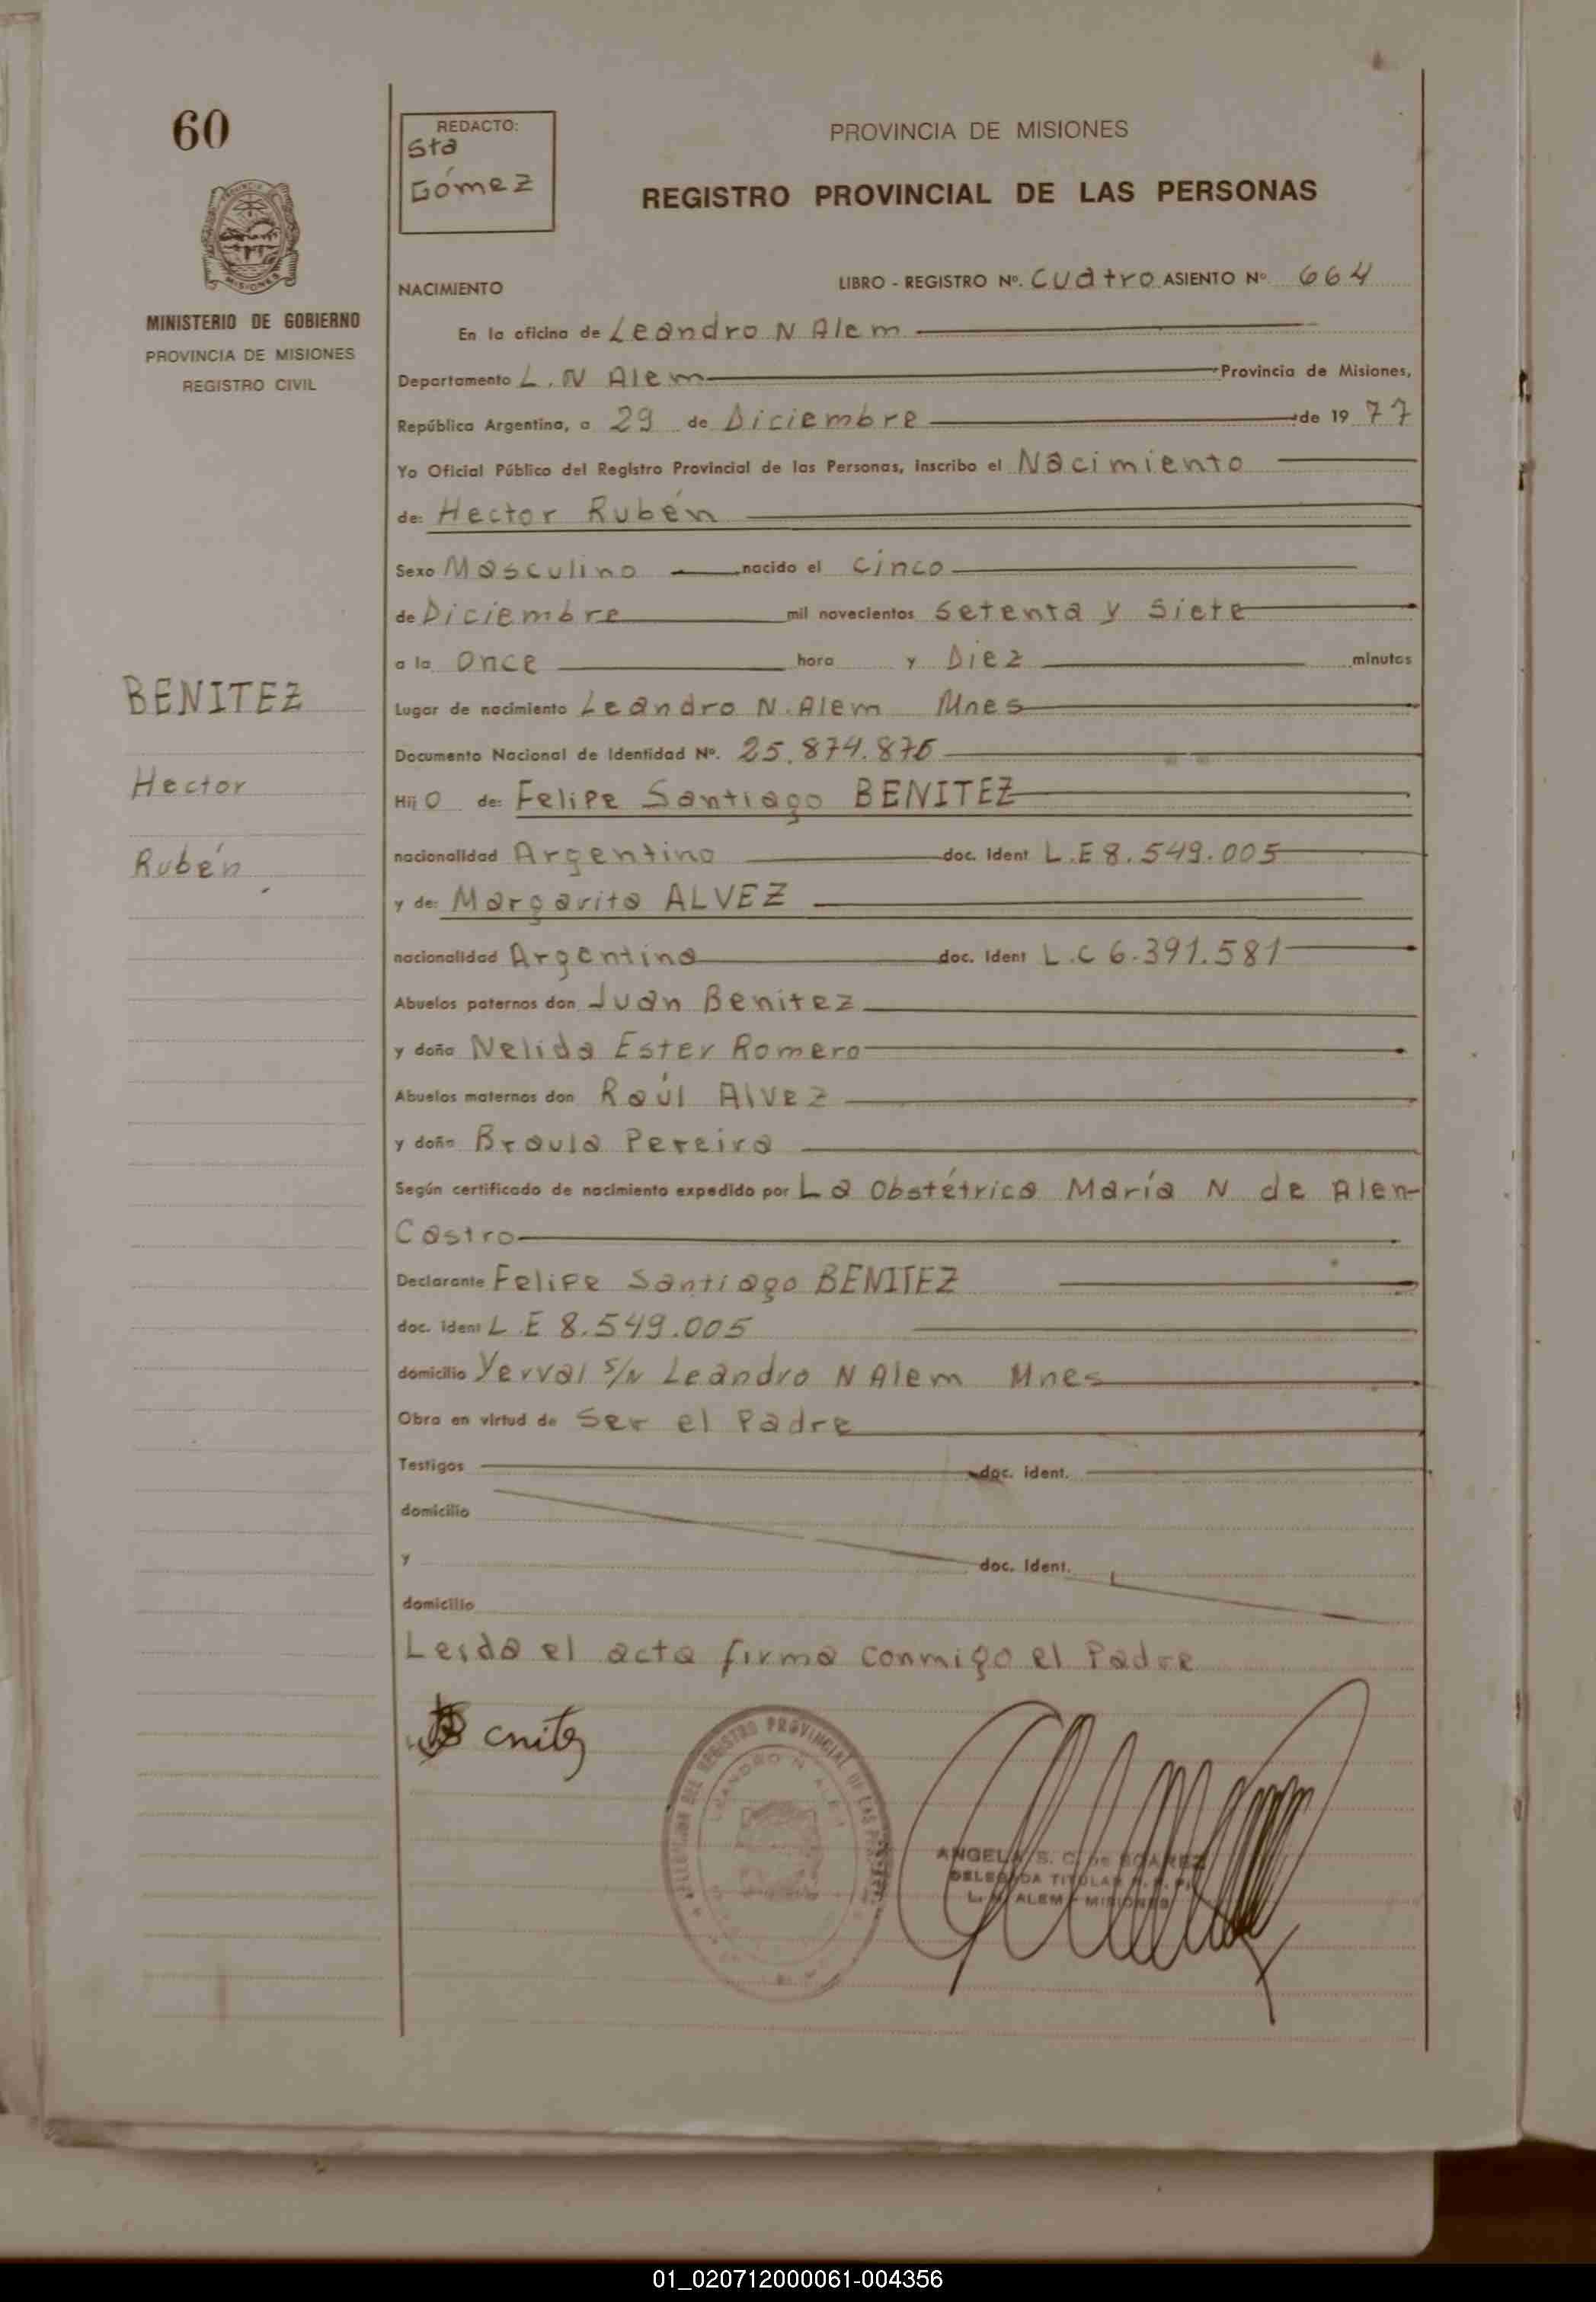 60
REDACTO:
Sta
Gómez
PROVINCIA DE MISIONES
REGISTRO PROVINCIAL DE LAS PERSONAS
MISIONES
MINISTERIO DE GOBIERNO
PROVINCIA DE MISIONES
REGISTRO CIVIL
NACIMIENTO
LIBRO - REGISTRO Nº. Cuatro ASIENTO Nº 664
En la oficina de Leandro N Alem
Departamento L. N Alem Provincia de Misiones,
República Argentina, a 29 de Diciembre de 19 77
Yo Oficial Público del Registro Provincial de las Personas, inscribo el Nacimiento
de: Hector Rubén
Sexo Masculino nacido el Cinco
de Diciembre mil novecientos Setenta y Siete
a la Once hora y Diez minutos
BENITEZ
Hector
Rubén
Lugar de nacimiento Leandro N. Alem Mnes
Documento Nacional de Identidad Nº. 25.874.876
Hij o de: Felipe Santiago BENITEZ
nacionalidad Argentino doc. Ident L.E 8.549.005
y de: Margarita ALVEZ
nacionalidad Argentina doc. Ident L.C 6.391.581
Abuelos paternos don Juan Benitez
y doña Nelida Ester Romero
Abuelos maternos don Raúl Alvez
y doña Braula Pereira
Según certificado de nacimiento expedido por La Obstétrica María N de Alen-
Castro
Declarante Felipe Santiago BENITEZ
doc. Ident L.E 8.549.005
domicilio Yerval s/N Leandro N Alem Mnes
Obra en virtud de Ser el Padre
Testigos doc. ident.
domicilio
y doc. Ident.
domicilio
Leida el acta firma conmigo el Padre
Benitez
DEL REGISTRO PROVINCIAL DE LAS
LEANDRO N ALEM
ANGELA S. C. de
DELEGADA TITULAR
L. N. ALEM - MISIONES
01_020712000061-004356